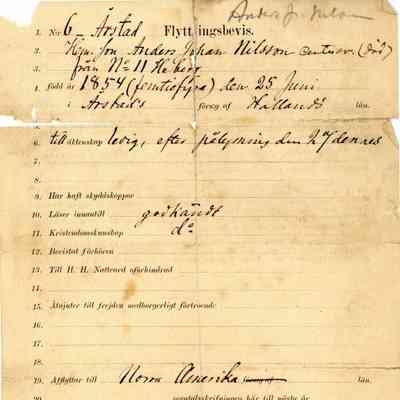 Anders J. Nilson
1. No 6 - Årstad Flyttningsbevis.
2. Anders Johan Nilsson
3. från No 11 Heberg
4. född år 1854 (femtiofyra) den 25 Juni
5. i Årstads förs:g af Hallands län.
6. till äktenskap ledig, efter pålysning den 27 dennes
7.
8.
9. Har haft skyddskoppor
10. Läser innantill godkändt
11. Kristendomskunskap do
12. Bevistat förhören
13. Till H. H. Nattvard oförhindrad
14.
15. Åtnjuter till frejden medborgerligt förtroende
16.
17.
18.
19. Afflyttar till Norra Amerika förs:g af län.
20. mantalsskrifningen här till nästa år